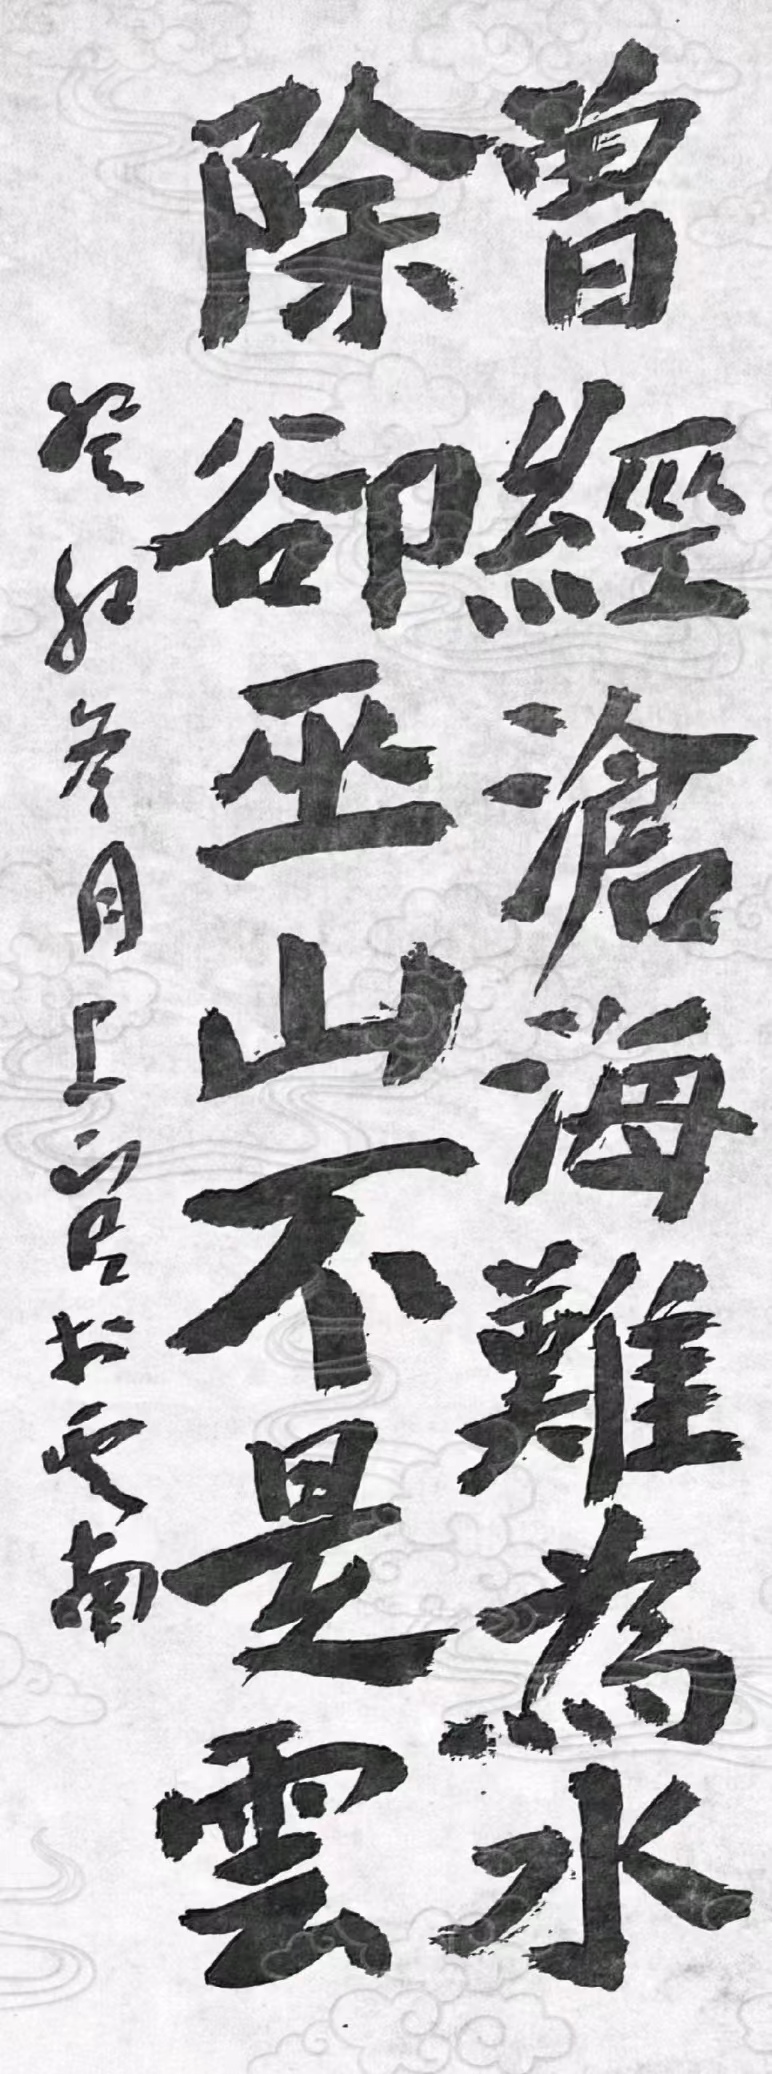 曾經滄海難為水
除卻巫山不是雲
癸卯冬月上官於雲南